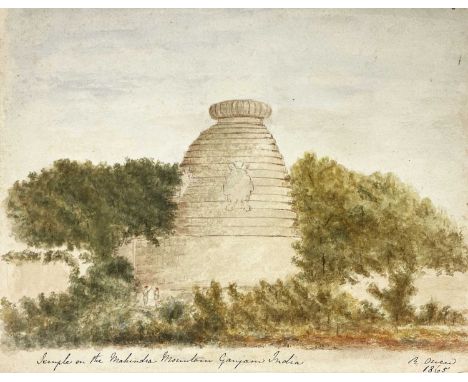 Temple on the Mahendra Mountain Ganjam India
1865